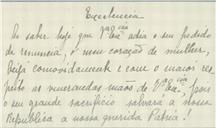 Excelencia
Ao saber hoje que V.ª Ex.cia adia o seu pedido
de renuncia, o meu coração de mulher,
beija comovidamente e com o maior res
peito as venerandas mãos de V.ª Ex.cia, pois
o seu grande sacrificio salvará a nossa
Republica a nossa querida Patria!